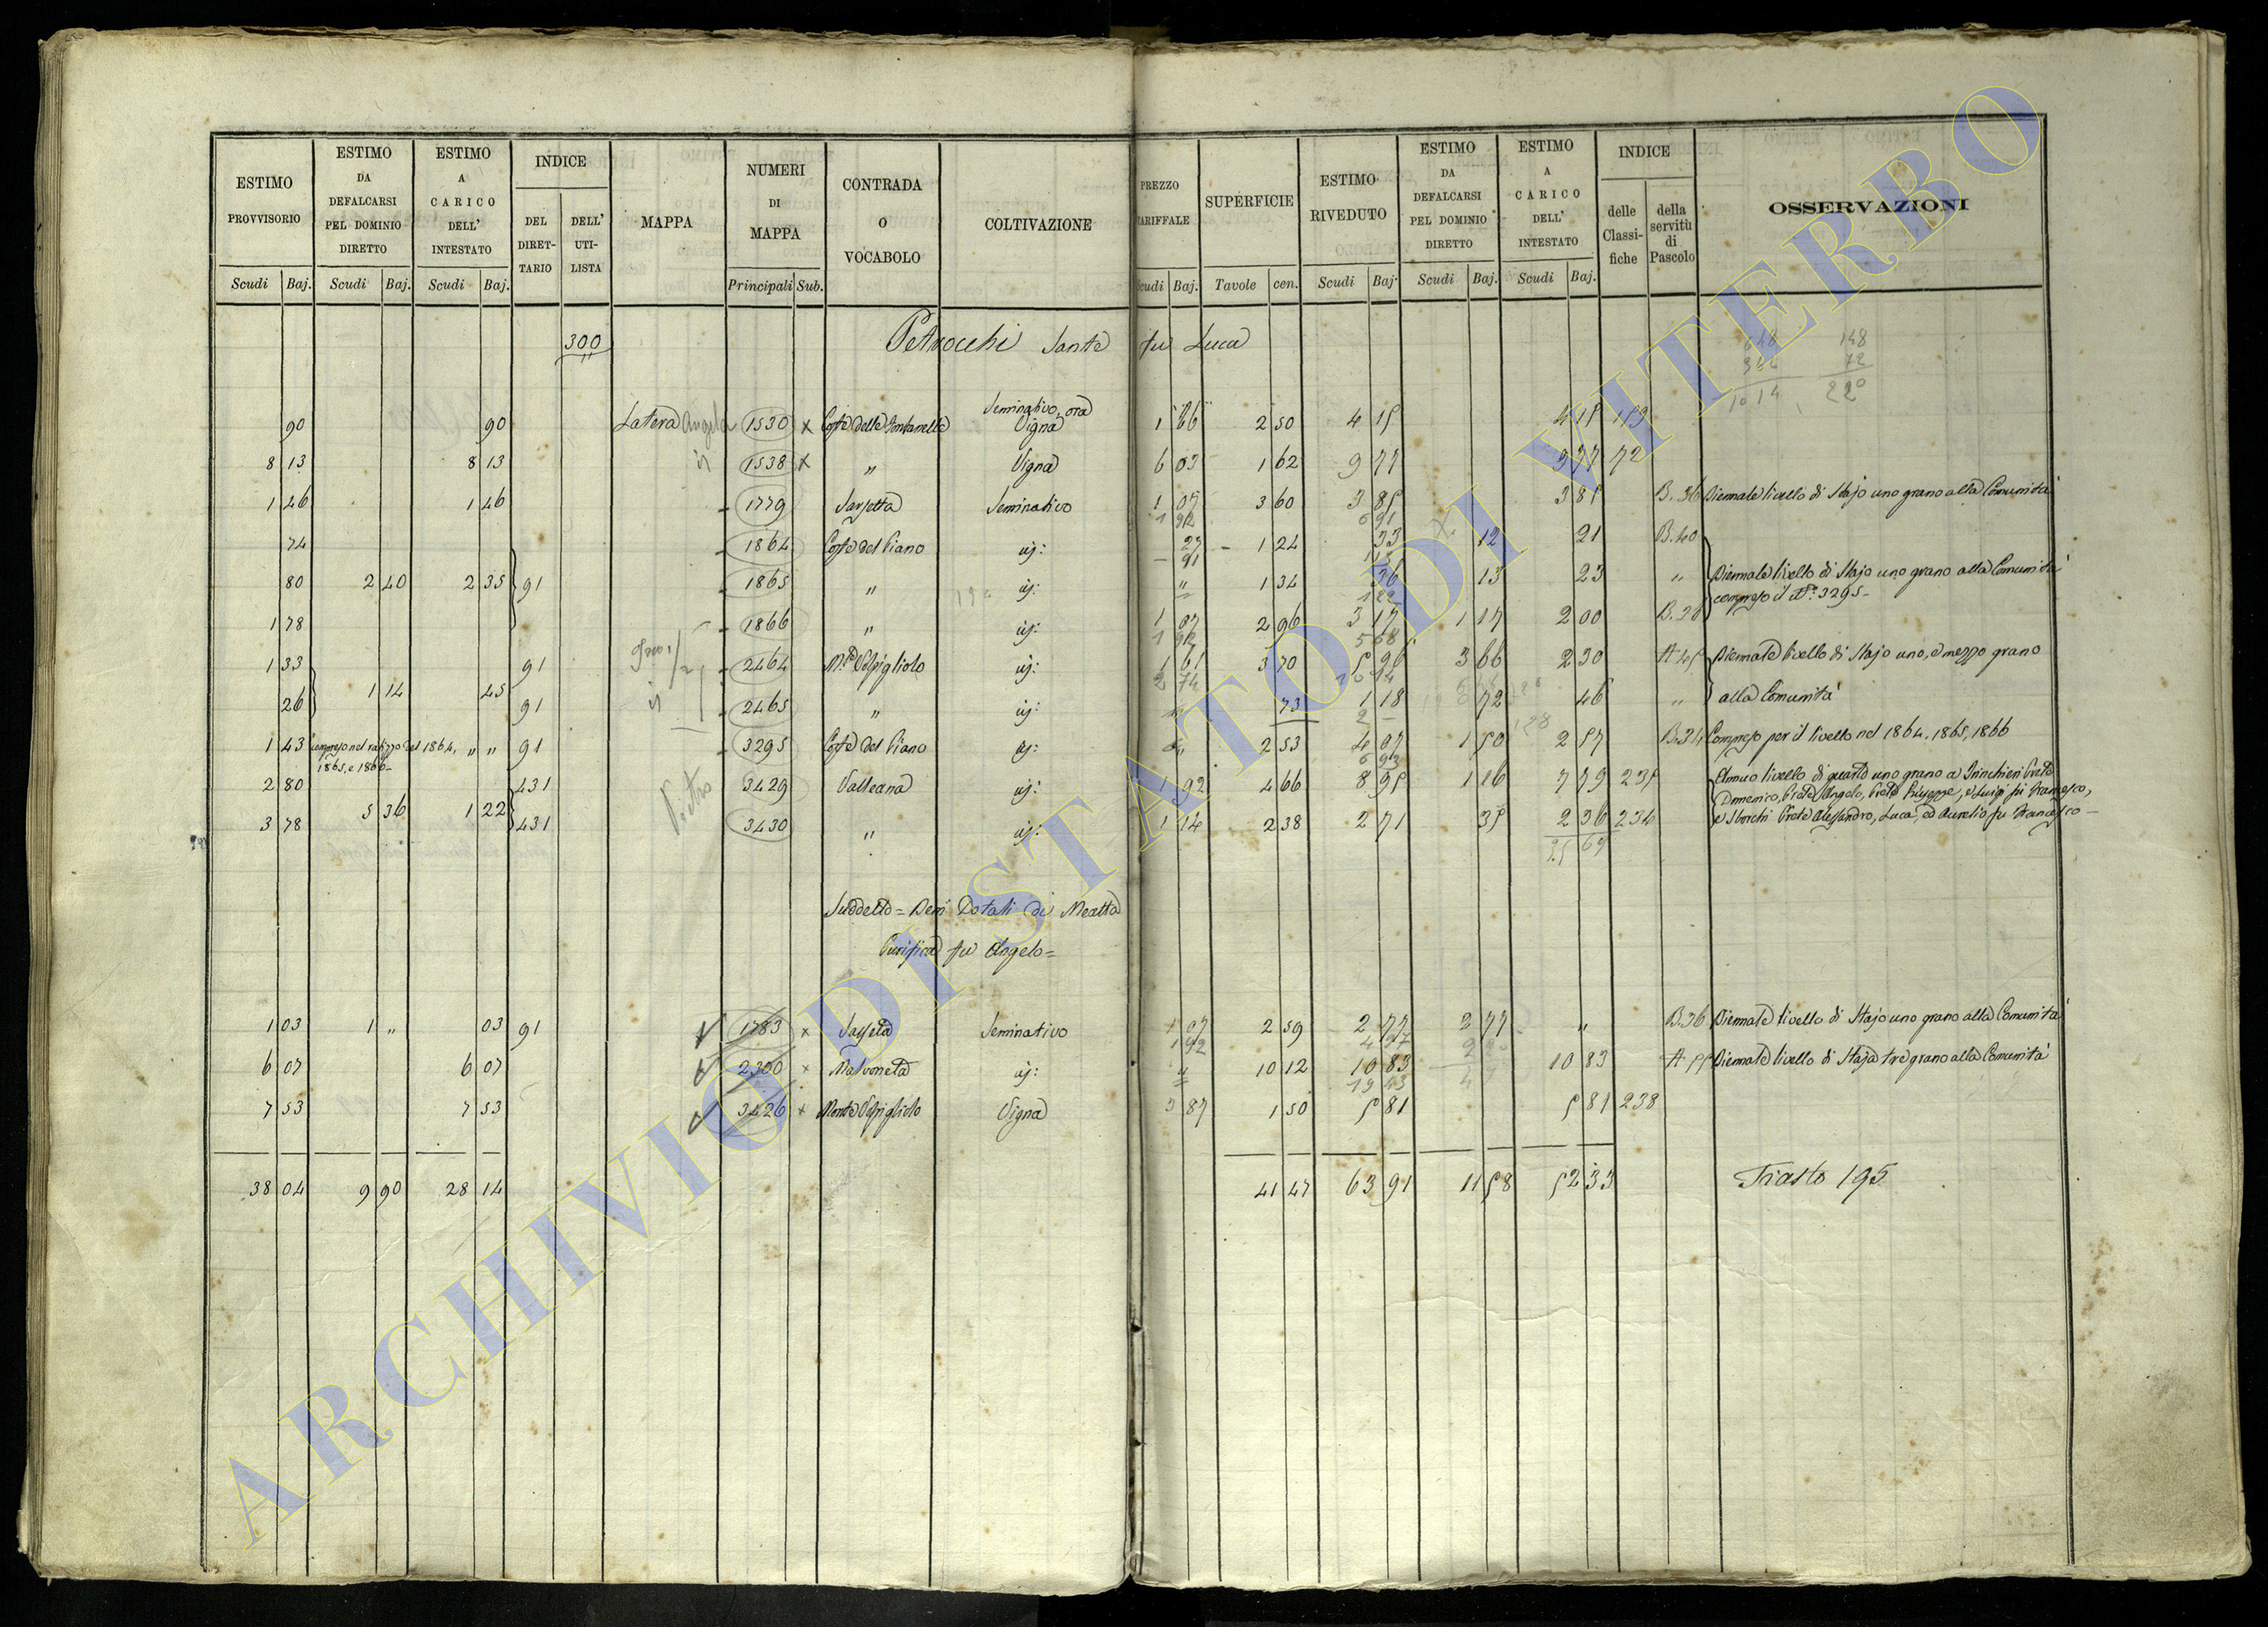 ESTIMO PROVVISORIO
ESTIMO DA DEFALCARSI PEL DOMINIO DIRETTO
ESTIMO A CARICO DELL' INTESTATO
INDICE
DEL DIRETTARIO
DELL' UTILISTA
MAPPA
NUMERI DI MAPPA
CONTRADA O VOCABOLO
COLTIVAZIONE
PREZZO TARIFFALE
SUPERFICIE
ESTIMO RIVEDUTO
ESTIMO DA DEFALCARSI PEL DOMINIO DIRETTO
ESTIMO A CARICO DELL' INTESTATO
INDICE
delle Classifiche
della servitù di Pascolo
OSSERVAZIONI
Scudi Baj. Scudi Baj. Scudi Baj. Principali Sub. Scudi Baj. Tavole cen. Scudi Baj. Scudi Baj. Scudi Baj.
300 Petrocchi Sante fu Luca
648 148
72
1014 220
90 90 Latera Angela 1530 x Coste delle Fontanelle Seminativo, ora Vigna 1 66 2 50 4 15 4 15 159
8 13 8 13 1538 x " Vigna 6 03 1 62 9 77 9 77 72
1 46 1 46 1779 Seminativo 1 07 3 60 3 85 3 85 B. 36 Biennale livello di Stajo uno grano alla Comunità
74 1864 Coste del Piano id: 27 1 24 33 12 21 B. 40
80 2 40 2 35 91 1865 " id: " 1 34 36 13 23 " Biennale livello di Stajo uno grano alla Comunità
compreso il N.° 3295 -
1 78 1866 " id: 1 07 2 96 3 17 1 17 2 00
1 33 91 2464 M.te Volpigliolo id: 1 61 3 70 5 96 3 66 2 30 A 45 Biennale livello di Stajo uno, e mezzo grano
1 14 45
26 91 2465 " id: 73 1 18 72 46 " alla Comunità
1 43 compreso nel ratizzo del 1864, " " 91 3295 Coste del Piano id: 2 53 4 07 1 50 2 57 B.34 Compreso per il livello nel 1864, 1865, 1866
1865, e 1866 -
2 80 431 Pietro 3429 Valleana id: 1 92 4 66 8 95 1 16 7 79 235 Annuo livello di quarto uno grano a
5 36 1 22 Domenico, Prete Angelo, Prete Giuseppe, e Luigi fu Francesco,
3 78 431 3430 " id: 1 14 2 38 2 71 35 2 36 234 e Prete Alessandro, Luca, ed Aurelio fu Francesco -
35 69
Suddetto = Beni Dotali di
Purifica fu Angelo =
1 03 1 " 03 91 1783 x Seminativo 1 07 2 59 2 77 2 77 " B.36 Biennale livello di Stajo uno grano alla Comunità
6 07 6 07 2300 x id: " 10 12 10 83 10 83 A 55 Biennale livello di Staja tre grano alla Comunità
7 53 7 53 3426 x Monte Volpigliolo Vigna 3 87 1 50 5 81 5 81 238
38 04 9 90 28 14 41 47 63 91 11 58 52 33 195
ARCHIVIO DI STATO DI VITERBO